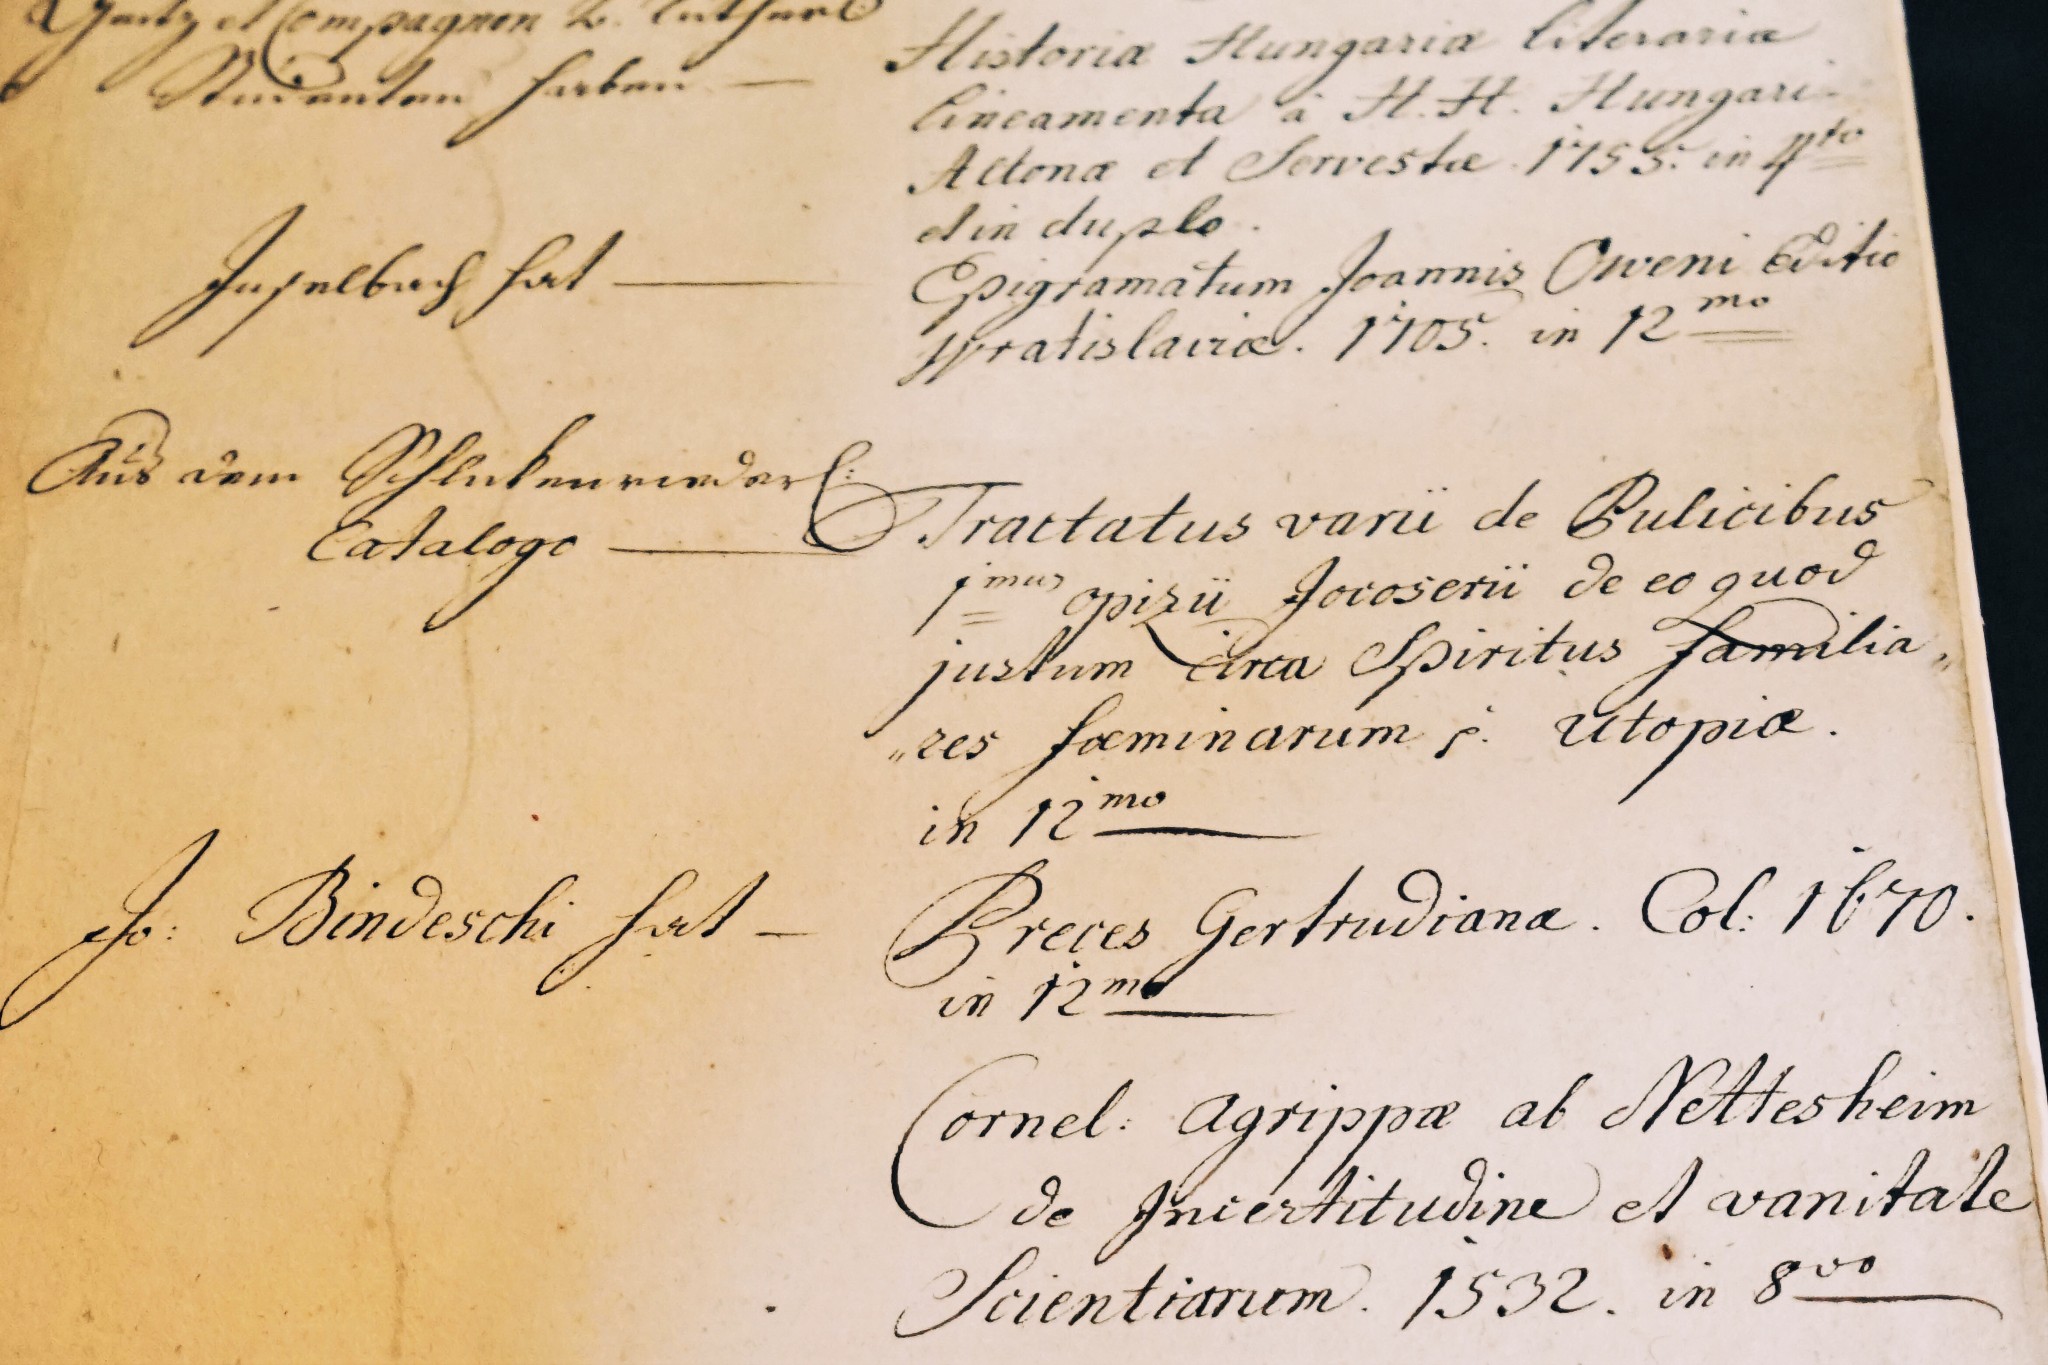 et Compagnon L.
Studenten haben —
Historiæ Hungariæ literariæ
lineamenta à H. H. Hungari
Altonæ et Servestæ. 1755. in 4to
et in duplo.
Inselbach hat —
Epigramatum Joannis Oweni Editio
Wratislaviæ. 1705. in 12mo
Aus dem
Catalogo —
Tractatus varii de Pulicibus
1mus opizii Jocoserii de eo quod
justum circa Spiritus familia„
„res fœminarum s. Utopiæ.
in 12mo
Jo: Bindeschi hat —
Preces Gertrudianæ. Col: 1670.
in 12mo
Cornel: Agrippæ ab Nettesheim
de Incertitudine et vanitate
Scientiarum. 1532. in 8vo